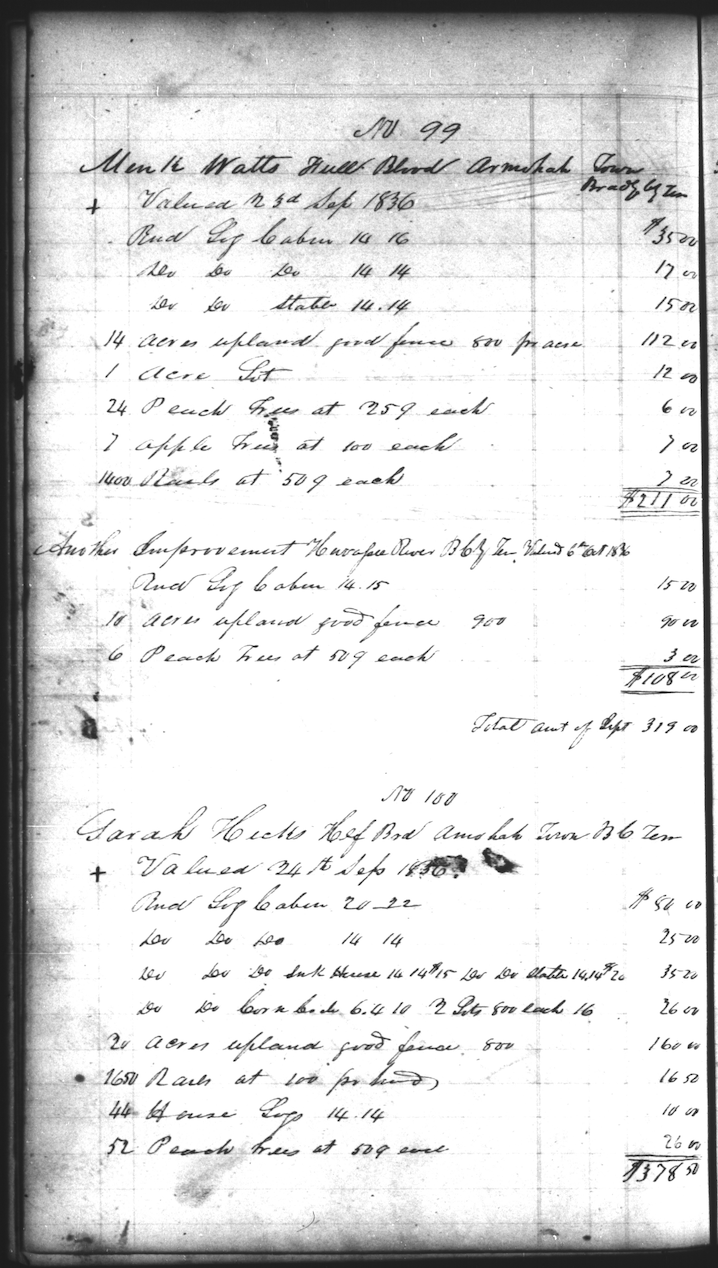 No 99
Mink Watts Full Blood Armohah Town
Brady Cy Ten
+ Valued 23d Sep 1836
Rnd Log Cabin 14 16 $35 00
Do Do Do 14 14 17 00
Do Do Stable 14.14 15 00
14 Acres upland good fence 800 pr acre 112 00
1 Acre Lot 12 00
24 Peach Trees at 25¢ each 6 00
7 apple Trees at 100 each 7 00
1400 Rails at 50¢ each 7 00
$211 00
Another Improvement River B Cy Ten. Valued 6th Oct 1836
Rnd Log Cabin 14.15 15 00
10 Acres upland good fence 900 90 00
6 Peach Trees at 50¢ each 3 00
$108 00
Total amt of 319 00
No 100
Sarah Hicks Hlf Brd Amohah Town B C Ten
+ Valued 24th Sep 1836.
Rnd Log Cabin 20 22 $80 00
Do Do Do 14 14 25 00
Do Do Do Smk House 14 14 $15 Do Do Stable 14.14 $20 35 00
Do Do Corn Crib 6.4 10 2 Lots 800 each 16 26 00
20 Acres upland good fence. 800 160 00
1650 Rails at 100 pr hund 16 50
44 House Logs 14.14 10 00
52 Peach Trees at 50¢ each 26 00
$378 50